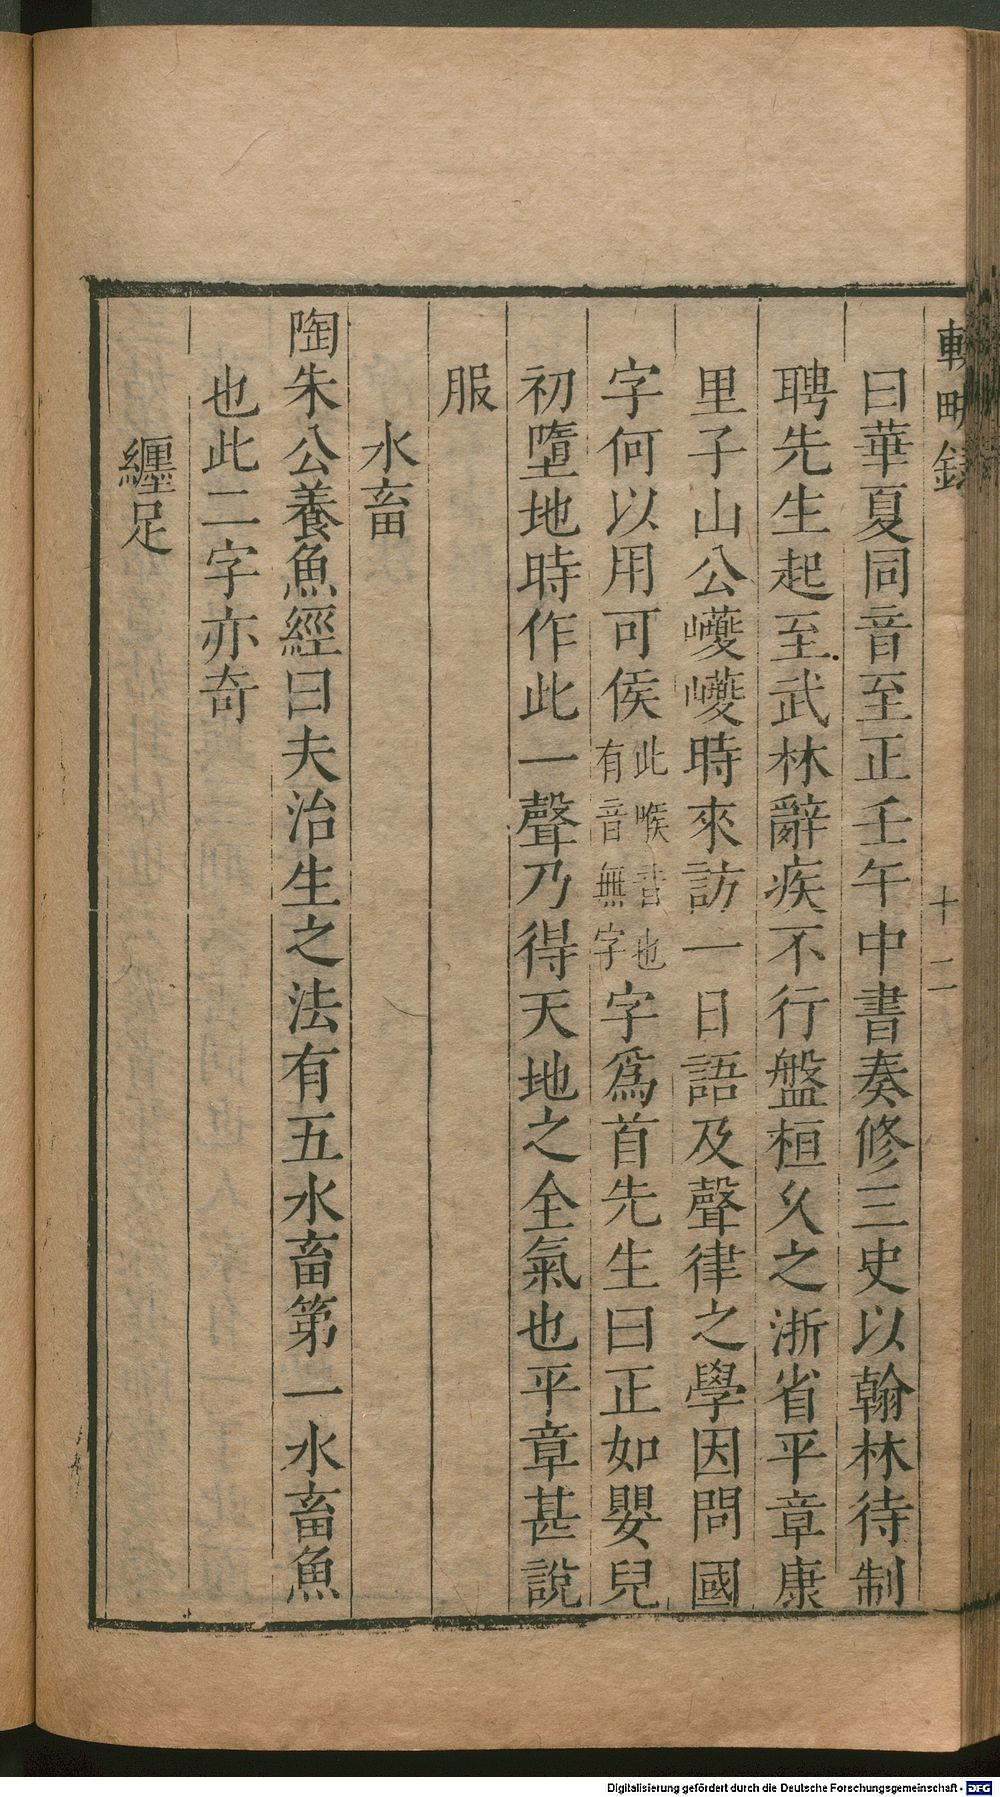 輟畊錄
十二
曰華夏同音至正壬午中書奏修三史以翰林待制
聘先生起至武林辭疾不行盤桓久之浙省平章康
里子山公巙巙時來訪一日語及聲律之學因問國
字何以用可侯此喉音也有音無字字爲首先生曰正如嬰兒
初墮地時作此一聲乃得天地之全氣也平章甚說
服
水畜
陶朱公養魚經曰夫治生之法有五水畜第一水畜魚
也此二字亦奇
纏足
Digitalisierung gefördert durch die Deutsche Forschungsgemeinschaft - DFG